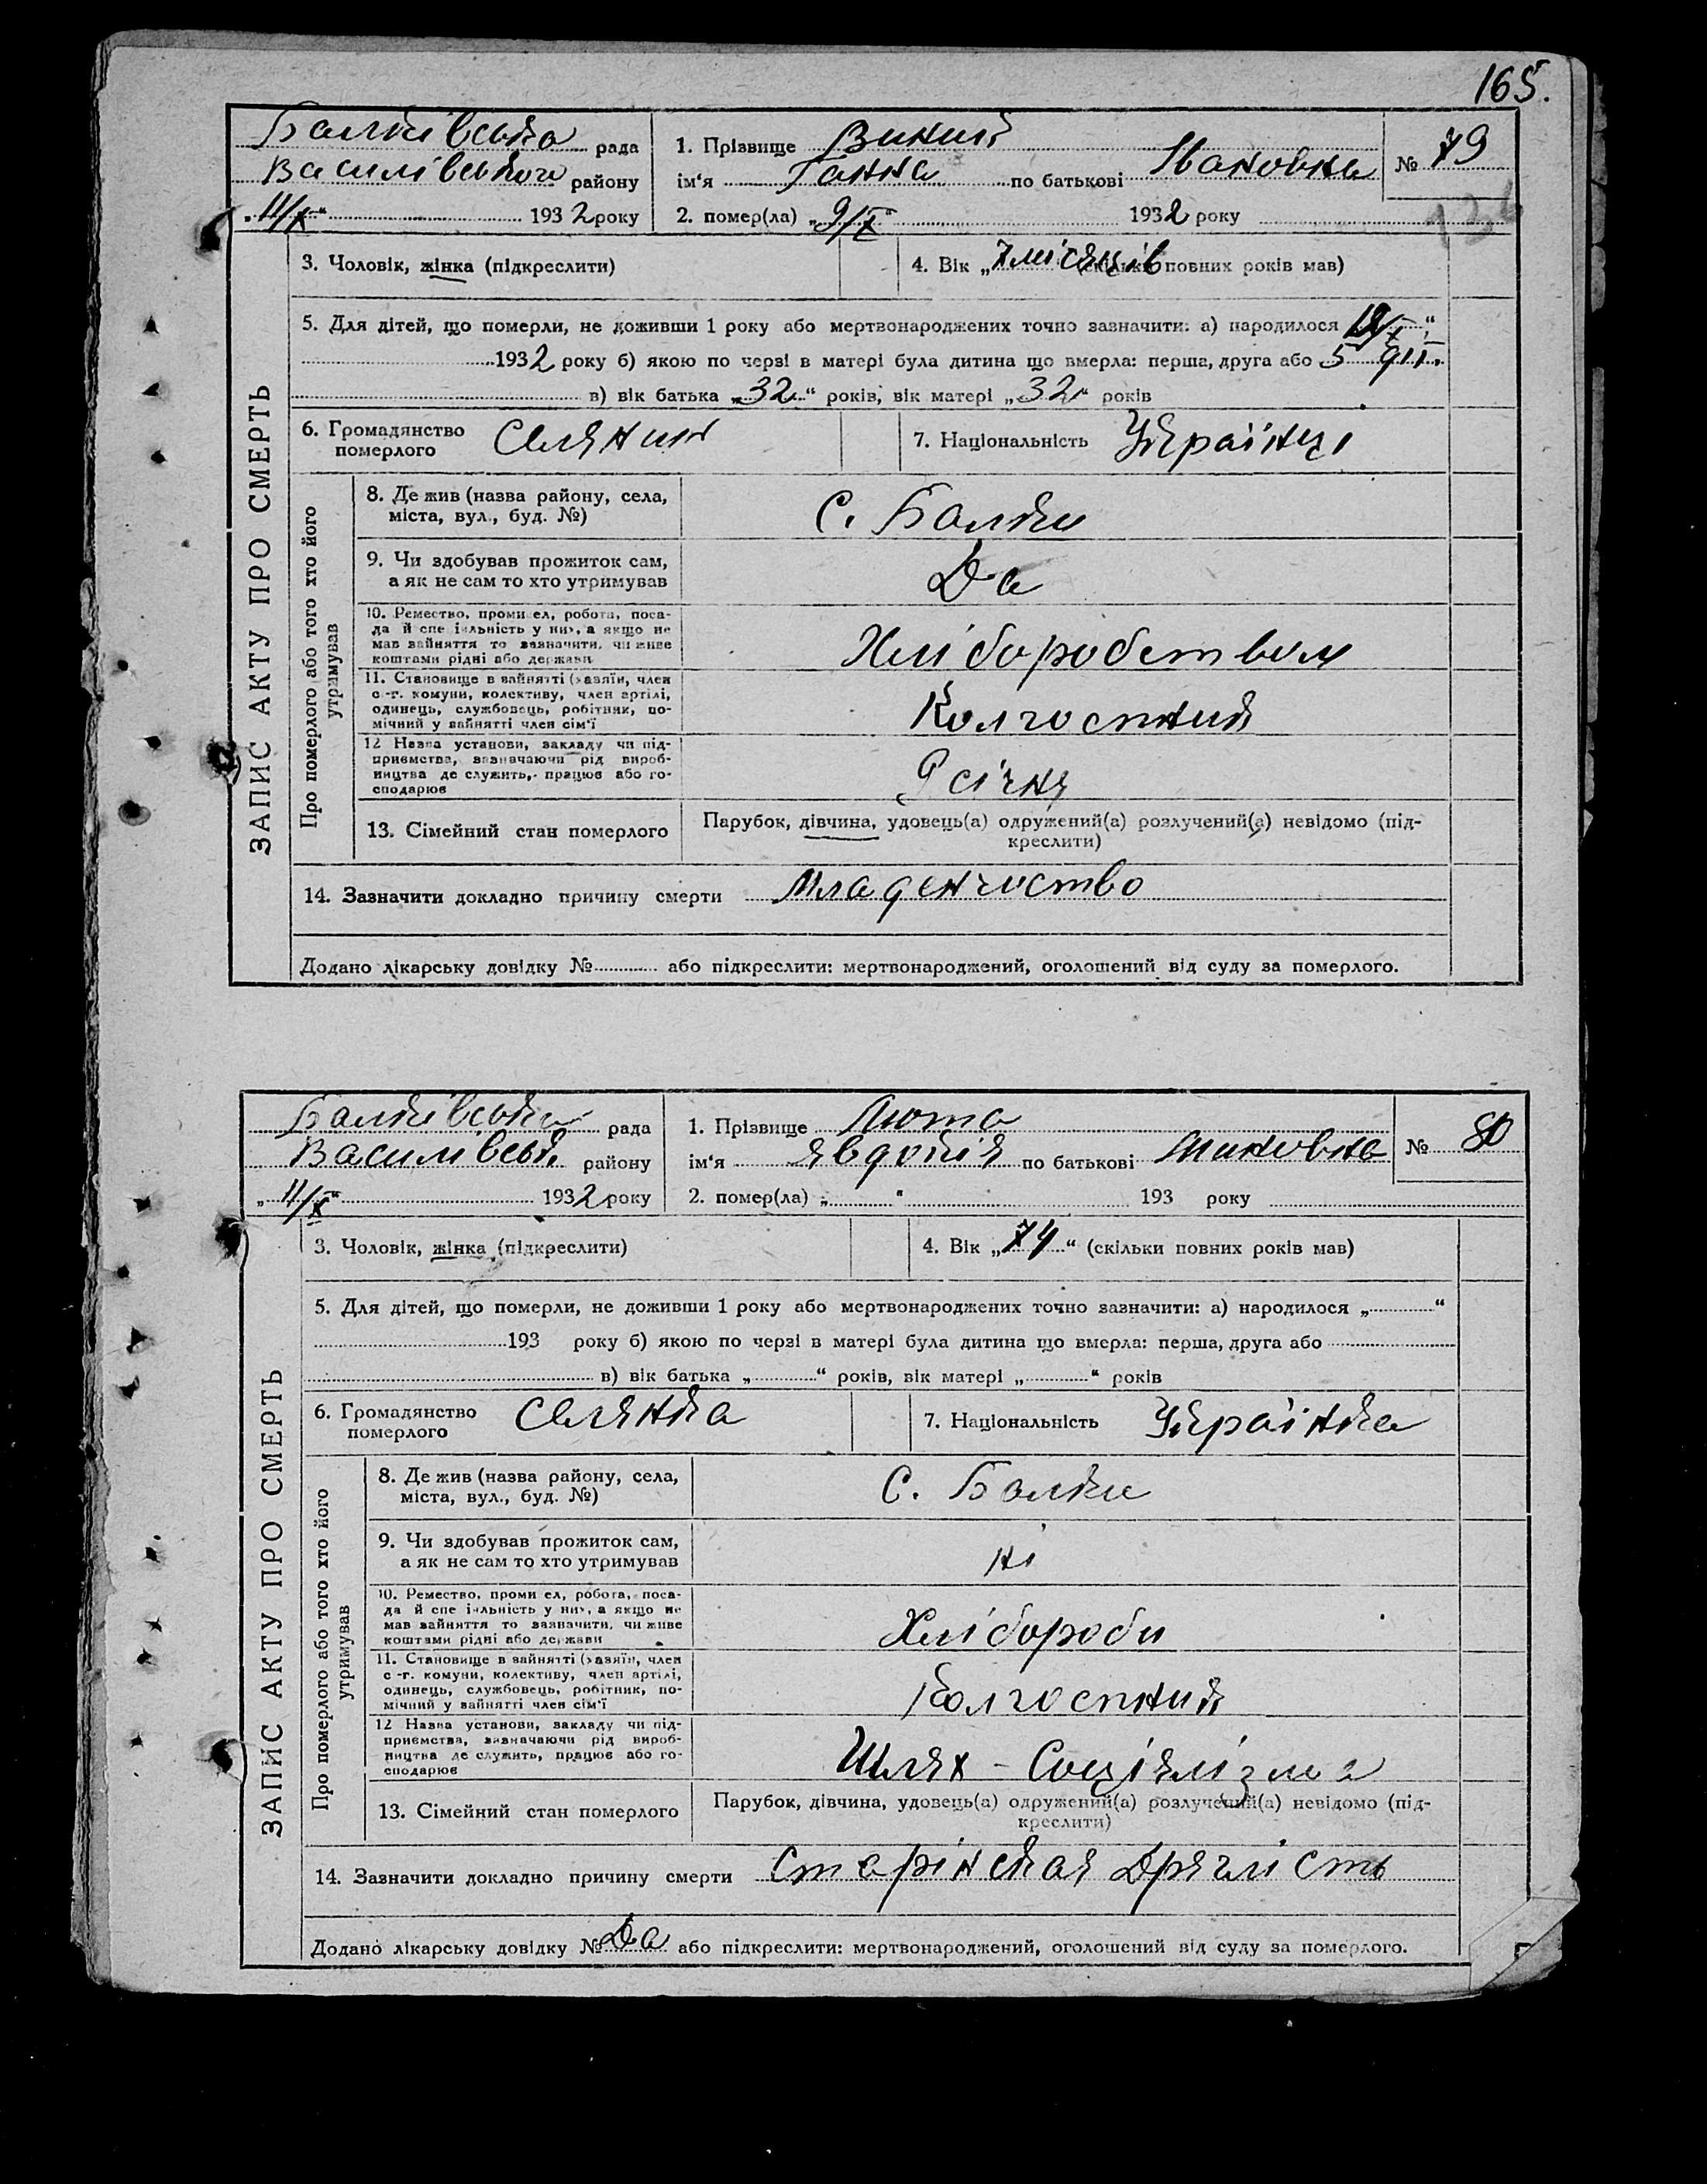 165.
Балківська рада
Василівського району
„11/X“ 1932 року
1. Прізвище Виний
ім‘я Ганна по батькові Івановна
№ 79
2. помер(ла) „9/X“ 1932 року
ЗАПИС АКТУ ПРО СМЕРТЬ
3. Чоловік, жінка (підкреслити)
4. Вік „7 місяців (скільки повних років мав)
5. Для дітей, що померли, не доживши 1 року або мертвонароджених точно зазначити: а) народилося “
1932 року б) якою по черзі в матері була дитина що вмерла: перша, друга або 5
в) вік батька „32“ років, вік матері „32“ років
6. Громадянство померлого Селянин
7. Національність Українці
Про померлого або того хто його утримував
8. Де жив (назва району, села,
міста, вул., буд. №)
С. Балки
9. Чи здобував прожиток сам,
а як не сам то хто утримував
Да
10. Ремество, промисел, робота, поса-
да й спеціяльність у них, а якщо не
мав зайняття то зазначити, чи живе
коштами рідні або держави
Хліборобством
11. Становище в зайнятті (хазяїн, член
с.-г. комуни, колективу, член артілі,
одинець, службовець, робітник, по-
мічний у зайнятті член сім‘ї
Колгоспник
12 Назва установи, закладу чи під-
приємства, зазначаючи рід вироб-
ництва де служить, працює або го-
сподарює
9 січня
13. Сімейний стан померлого
Парубок, дівчина, удовець(а) одружений(а) розлучений(а) невідомо (під-
креслити)
14. Зазначити докладно причину смерти Младенчоство
Додано лікарську довідку № або підкреслити: мертвонароджений, оголошений від суду за померлого.
Балківська рада
Василівськ. району
„11/X“ 1932 року
1. Прізвище Люта
ім‘я Явдокія по батькові
№ 80
2. помер(ла) „ “ 193 року
ЗАПИС АКТУ ПРО СМЕРТЬ
3. Чоловік, жінка (підкреслити)
4. Вік „74“ (скільки повних років мав)
5. Для дітей, що померли, не доживши 1 року або мертвонароджених точно зазначити: а) народилося „ “
193 року б) якою по черзі в матері була дитина що вмерла: перша, друга або
в) вік батька „ “ років, вік матері „ “ років
6. Громадянство померлого Селянка
7. Національність Українка
Про померлого або того хто його утримував
8. Де жив (назва району, села,
міста, вул., буд. №)
С. Балки
9. Чи здобував прожиток сам,
а як не сам то хто утримував
ні
10. Ремество, промисел, робота, поса-
да й спеціяльність у них, а якщо не
мав зайняття то зазначити, чи живе
коштами рідні або держави
Хлібороби
11. Становище в зайнятті (хазяїн, член
с.-г. комуни, колективу, член артілі,
одинець, службовець, робітник, по-
мічний у зайнятті член сім‘ї
Колгоспник
12 Назва установи, закладу чи під-
приємства, зазначаючи рід вироб-
ництва де служить, працює або го-
сподарює
Шлях - Соціялізма
13. Сімейний стан померлого
Парубок, дівчина, удовець(а) одружений(а) розлучений(а) невідомо (під-
креслити)
14. Зазначити докладно причину смерти Старінская Дряглість
Додано лікарську довідку № Да або підкреслити: мертвонароджений, оголошений від суду за померлого.